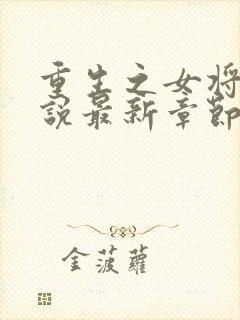 重生之女将
說最新章節
金菠蘿